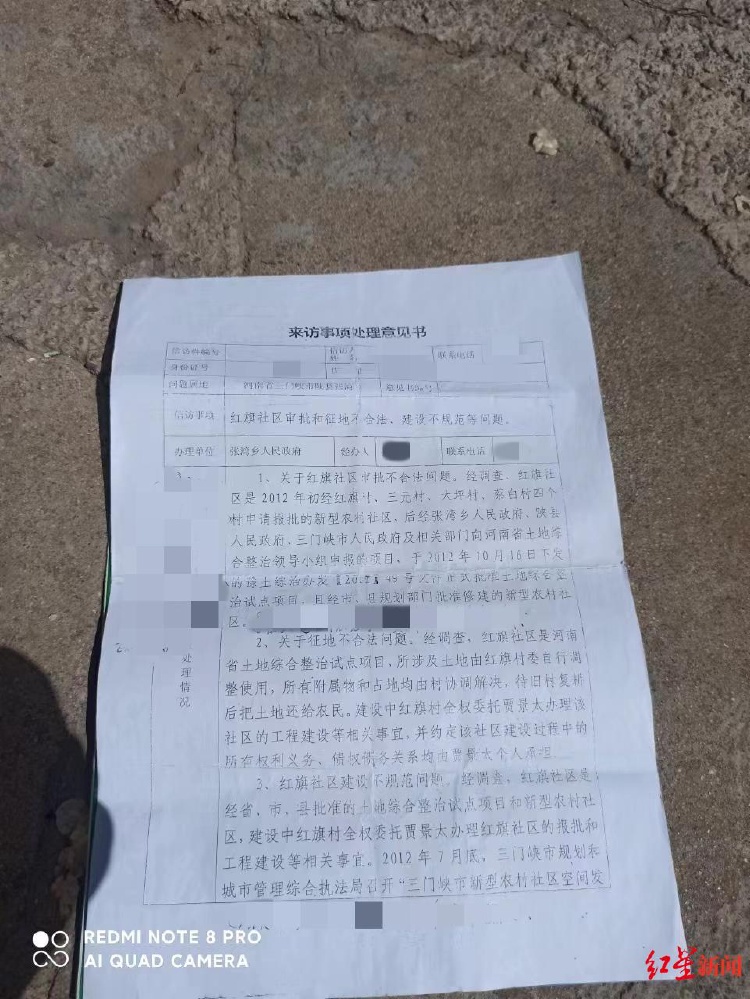 来访事项处理意见书
信访件编号 信访人姓名 联系电话
身份证号
问题属地 河南省三门峡市陕县 意见书编号
信访事项 红旗社区审批和征地不合法、建设不规范等问题。
办理单位 张湾乡人民政府 经办人 联系电话
1、关于红旗社区审批不合法问题。经调查，红旗社
区是2012年初经红旗村、三元村、大坪村、 四个
村申请报批的新型农村社区，后经张湾乡人民政府、陕县
人民政府、三门峡市人民政府及相关部门向河南省土地综
合整治领导小组申报的项目，于2012年10月16日下发
的豫土综治办发 49号文件正式批准土地综合整
治试点项目，且经市、县规划部门批准修建的新型农村社
区。
2、关于征地不合法问题。经调查，红旗社区是河南
省土地综合整治试点项目，所涉及土地由红旗村委自行调
整使用，所有附属物和占地均由村协调解决，待旧村复耕
后把土地还给农民。建设中红旗村全权委托贾景太办理该
社区的工程建设等相关事宜，并约定该社区建设过程中的
所有权利义务、债权债务关系均由贾景太个人承担。
3、红旗社区建设不规范问题。经调查，红旗社区是
经省、市、县批准的土地综合整治试点项目和新型农村社
区，建设中红旗村全权委托贾景太办理红旗社区的报批和
工程建设等相关事宜。2012年7月底，三门峡市规划和
城市管理综合执法局召开“三门峡市新型农村社区空间发
处理情况
REDMI NOTE 8 PRO
AI QUAD CAMERA
红星新闻